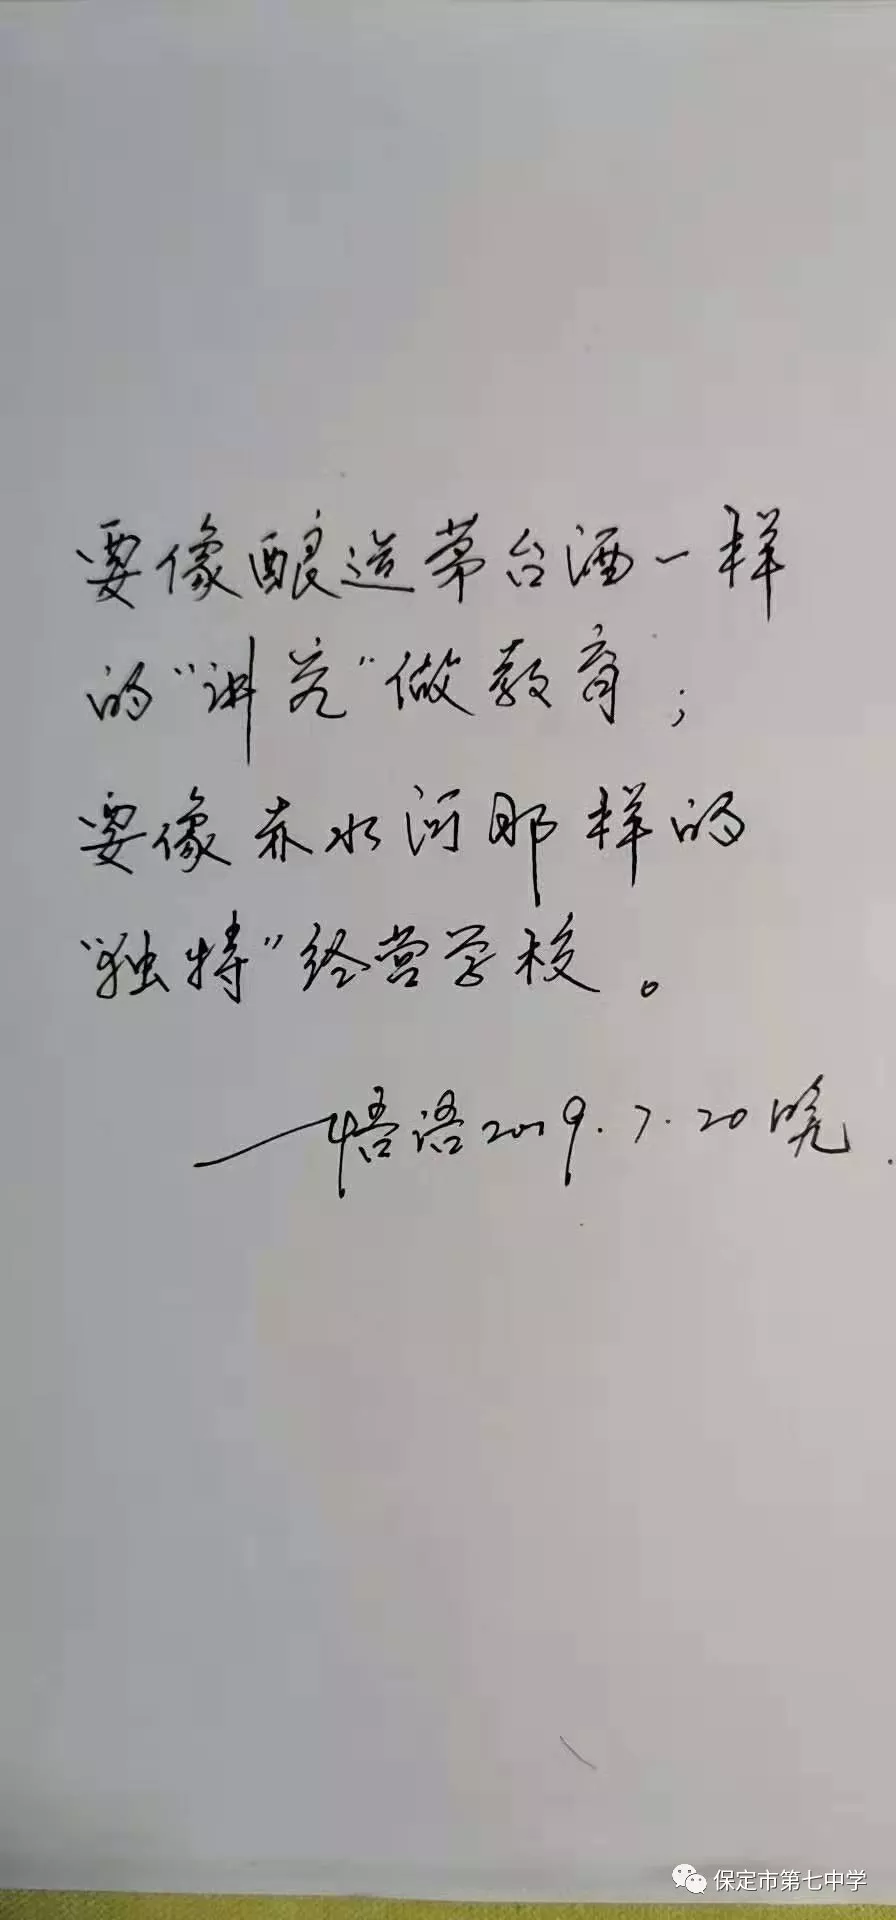 要像酿造茅台酒一样
的“讲究”做教育；
要像赤水河那样的
“独特”经营学校。
——悟语2019.7.20晓
保定市第七中学